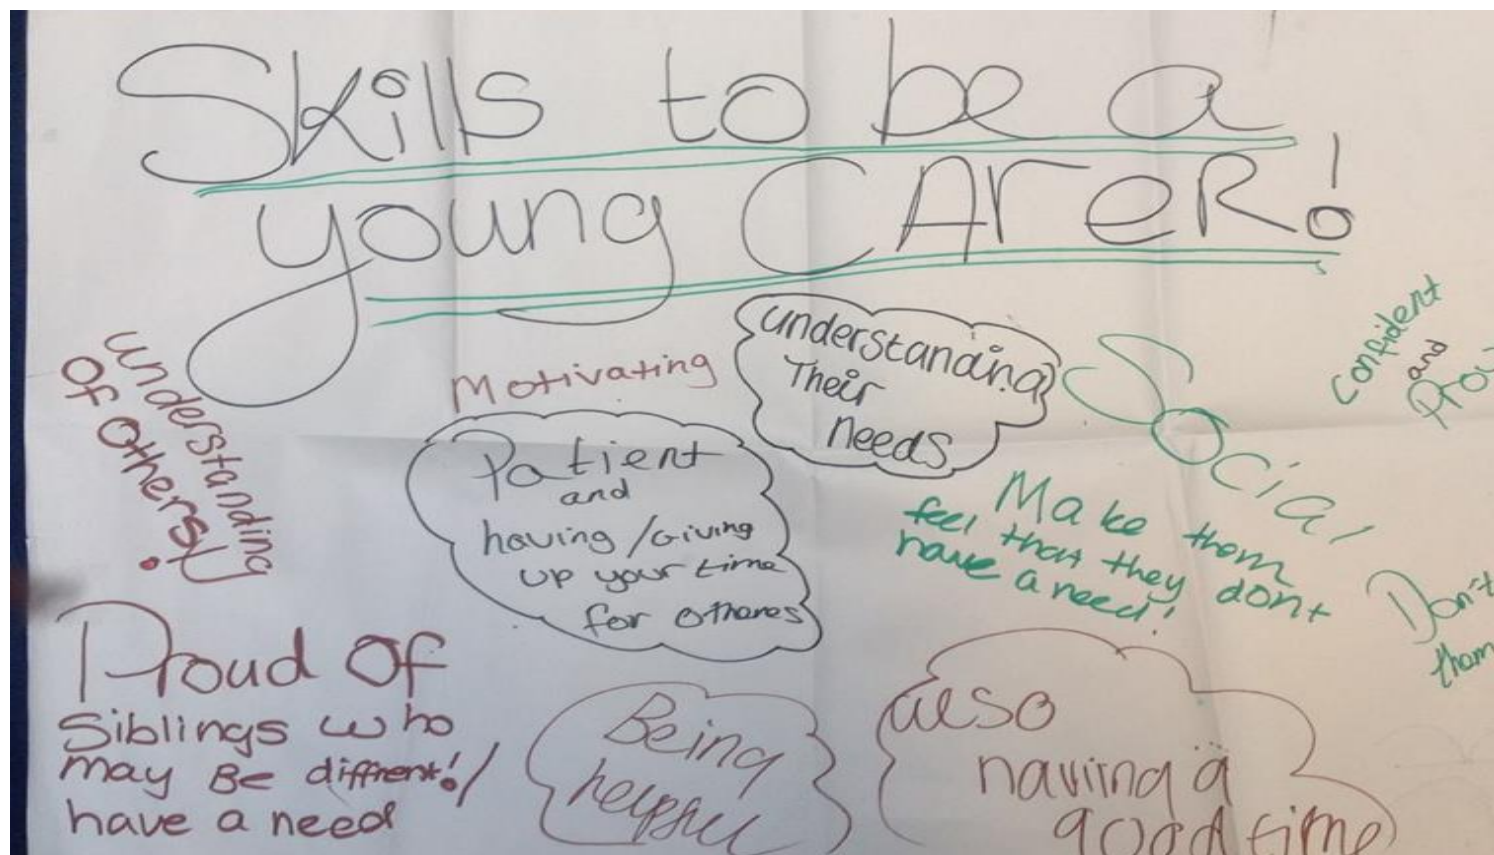 Skills to be a
young CArer!
understanding
of others!
Motivating
understanding
Their
needs
Social
Confident
and
Patient
and
having / Giving
up your time
for otheres
Make them
feel that they dont
have a need!
Don't
them
Proud Of
Siblings who
may Be diffrent! /
have a need
Being
helpful
also
having a
good time